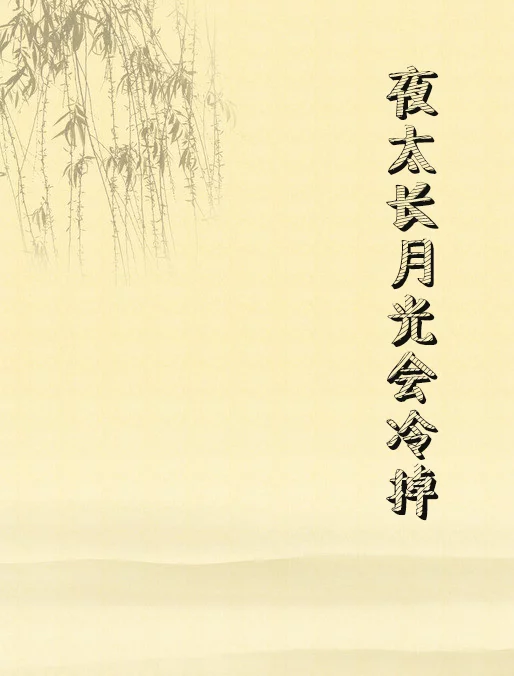 夜太长月光会冷掉